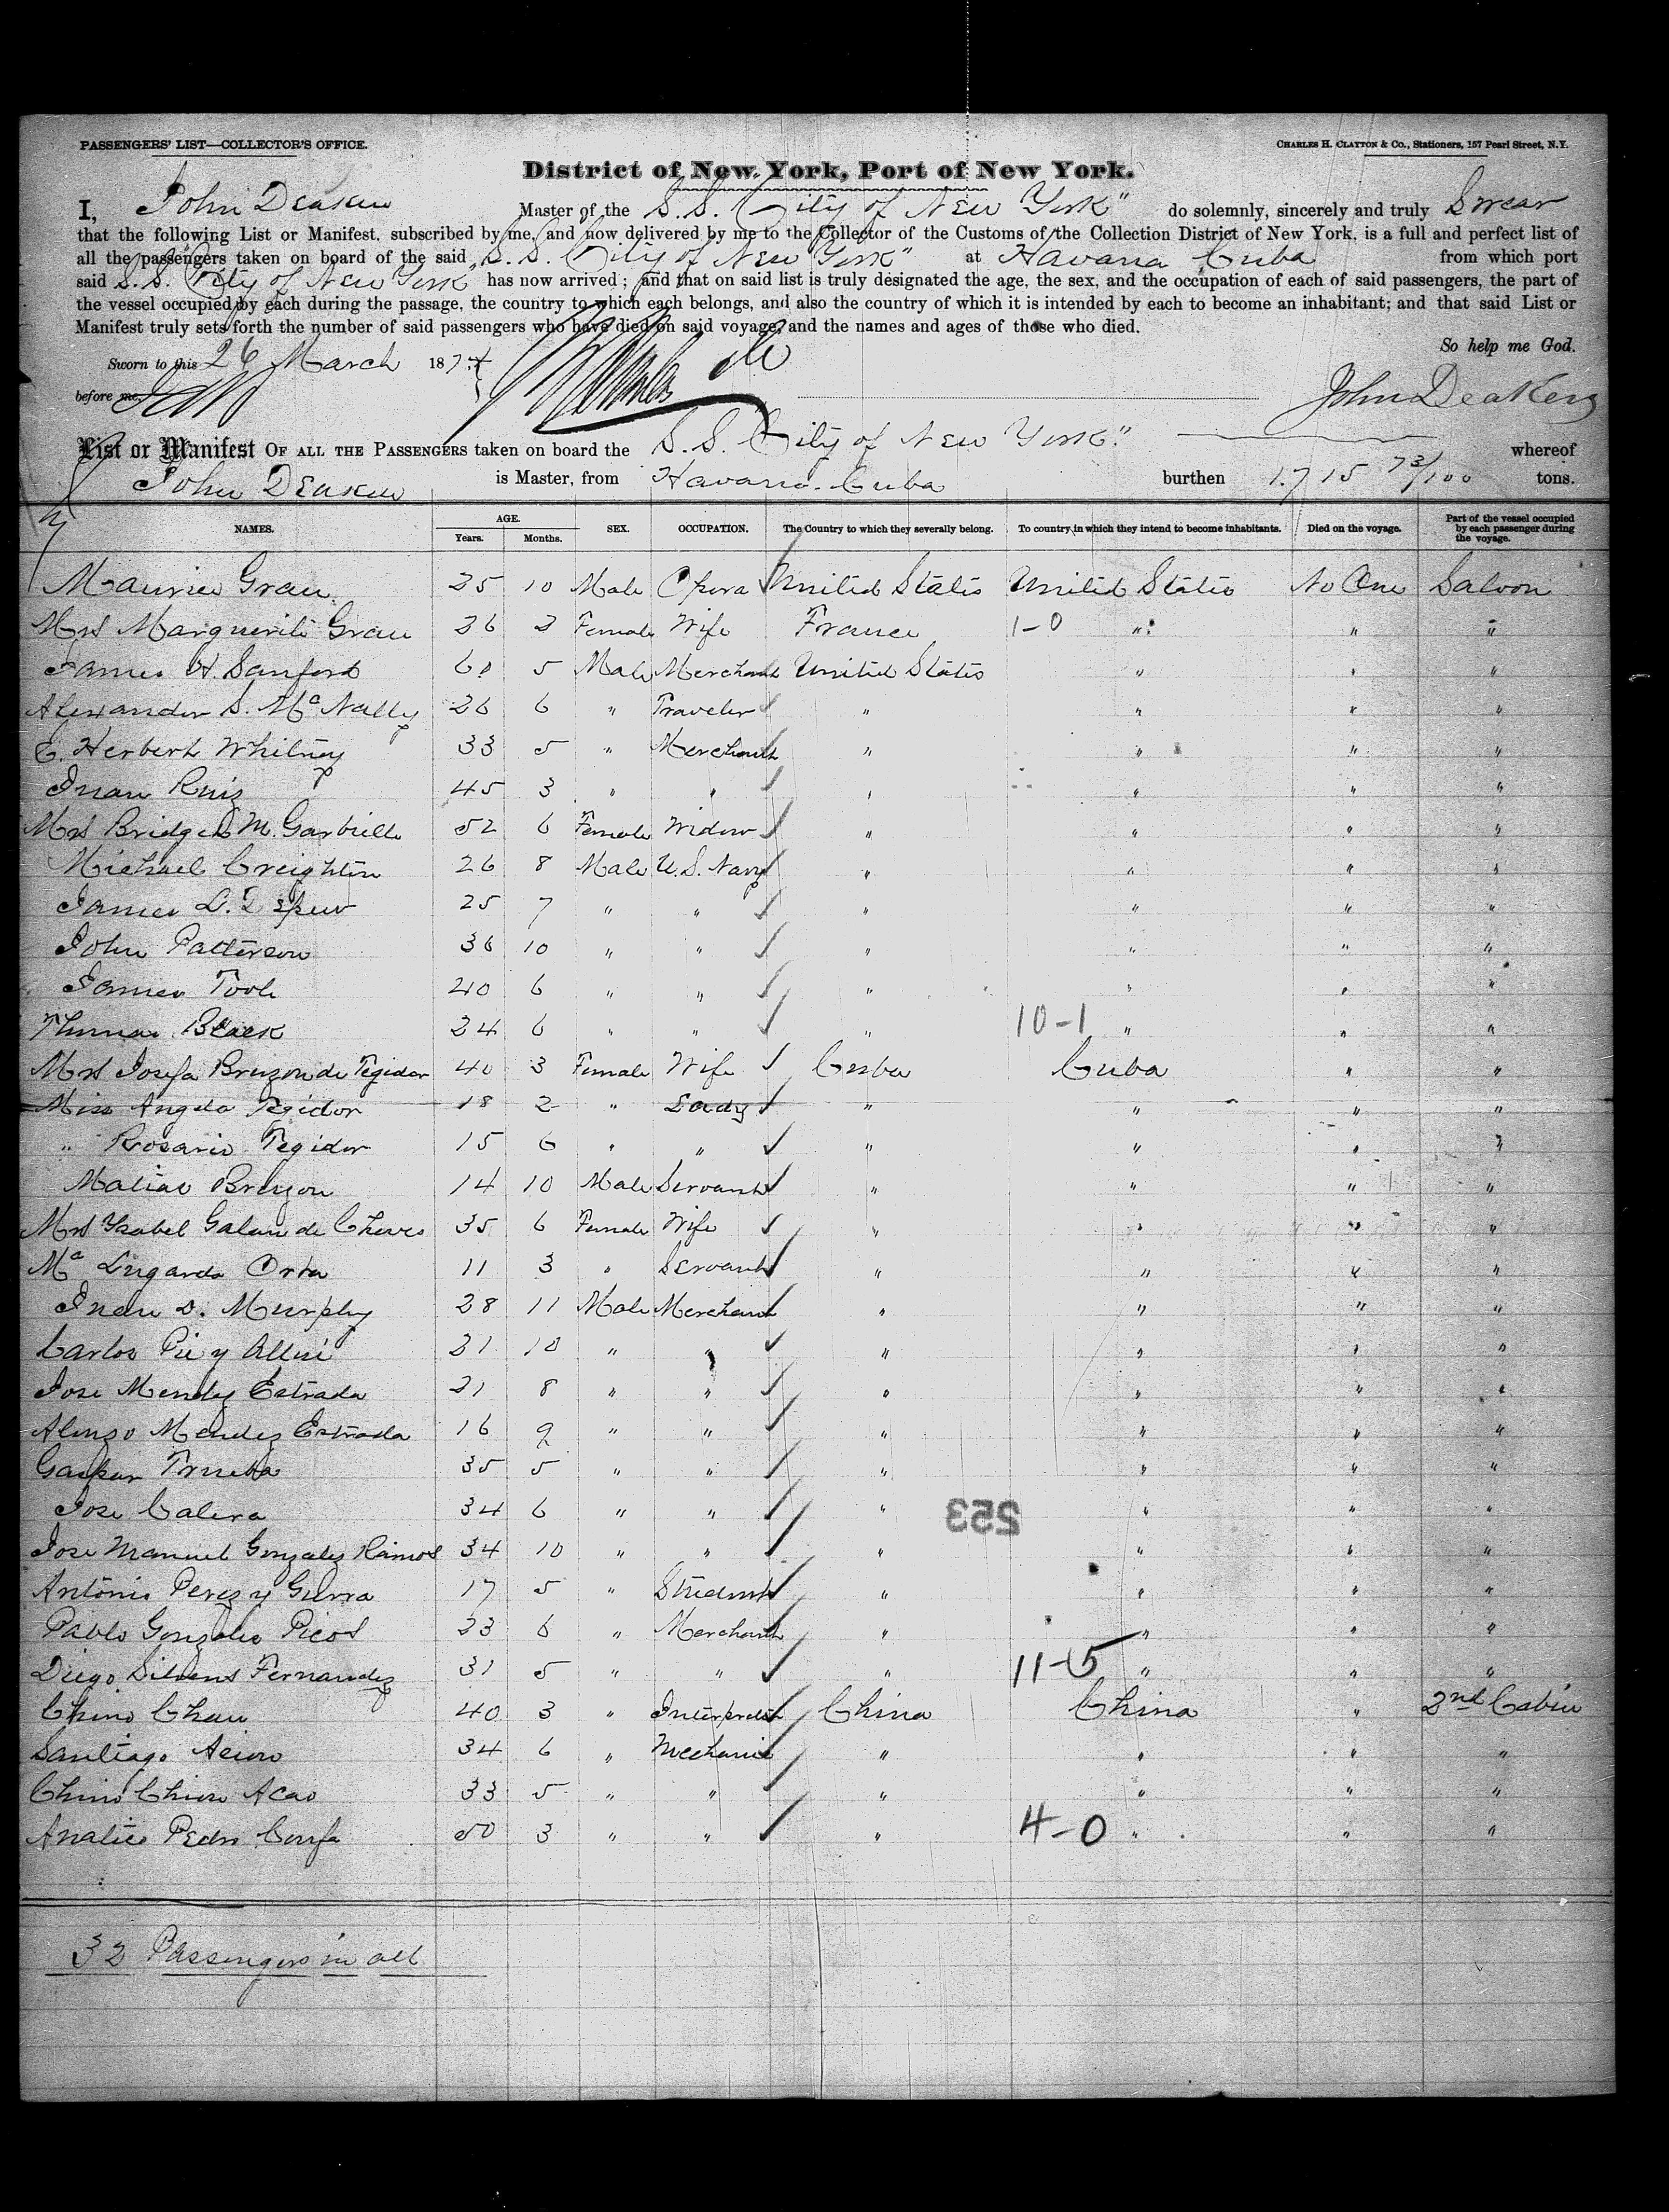 PASSENGERS' LIST—COLLECTOR'S OFFICE. CHARLES H. CLAYTON & CO., Stationers, 157 Pearl Street, N.Y.
District of New York, Port of New York.
I, John Deaken Master of the S.S. "City of New York" do solemnly, sincerely and truly Swear
that the following List or Manifest, subscribed by me, and now delivered by me to the Collector of the Customs of the Collection District of New York, is a full and perfect list of
all the passengers taken on board of the said S.S. "City of New York" at Havana Cuba from which port
said S.S. "City of New York" has now arrived; and that on said list is truly designated the age, the sex, and the occupation of each of said passengers, the part of
the vessel occupied by each during the passage, the country to which each belongs, and also the country of which it is intended by each to become an inhabitant; and that said List or
Manifest truly sets forth the number of said passengers who have died on said voyage, and the names and ages of those who died.
So help me God.
Sworn to this 26 March 187
before me, John Deaken
List or Manifest OF ALL THE PASSENGERS taken on board the S.S. "City of New York" whereof
John Deaken is Master, from Havana Cuba burthen 1.715 73/100 tons.
NAMES. AGE. Years. Months. SEX. OCCUPATION. The Country to which they severally belong. To country in which they intend to become inhabitants. Died on the voyage. Part of the vessel occupied by each passenger during the voyage.
Maurice Grau 25 10 Male Opera United States United States No One Saloon
Mrs Marguerite Grau 26 Female Wife France 1-0 " " "
James H. Sanford 60 5 Male Merchant United States " " "
Alexander S. McNally 26 6 " Traveler " " " "
E. Herbert Whitney 33 5 " Merchant " " " "
Juan Ruiz 45 3 " " " " " "
Mrs Bridget M. 52 6 Female Widow " " " "
Michael Creighton 26 8 Male U.S. Navy " " " "
James D. Depew 25 7 " " " " " "
John Patterson 36 10 " " " " " "
James Toole 40 6 " " " " " "
Thomas Black 24 6 " " " 10-1 " " "
Mrs Josefa Bruzon de Tegidor 40 3 Female Wife Cuba Cuba " "
Miss Angela Tegidor 18 2 " Lady " " " "
" Rosario Tegidor 15 6 " " " " " "
Matias Bruzon 14 10 Male Servant " " " "
Mrs Ysabel Galan de 35 6 Female Wife " " " "
Ma Lugarda Orta 11 3 " Servant " " " "
Juan D. Murphy 28 11 Male Merchant " " " "
Carlos Pie y 31 10 " " " " " "
Jose Mendez Estrada 21 8 " " " " " "
Alonzo Mendez Estrada 16 9 " " " " " "
Gaspar Trueba 35 5 " " " " " "
Jose Calera 34 6 " " " " " "
253
Jose Manuel Gonzalez Ramos 34 10 " " " " " "
Antonio Perez y 17 5 " Student " " " "
Pablo Gonzales Picos 23 6 " Merchant " " " "
Diego Fernandez 31 5 " " " 11-5 " " "
Chino Chau 40 3 " Interpreter China China " 2nd Cabin
Santiago 34 6 " Mechanic " " " "
Chino Chion Acao 33 5 " " " " " "
Pedro 50 3 " " " 4-0 " " "
32 Passengers in all